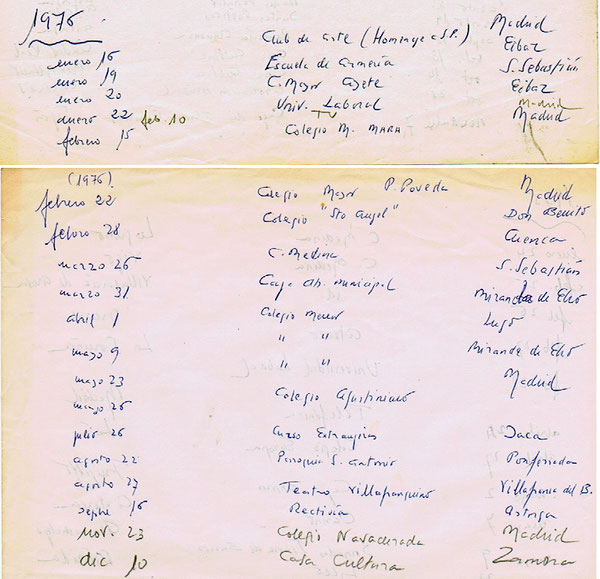 1976
Club de arte (Homenaje a S.P.) Madrid
enero 16 Escuela de Armería Eibar
enero 19 C. Mayor Ayete S. Sebastián
enero 20 Univ. Laboral Eibar
enero 22 feb. 10 TV Madrid
febrero 15 Colegio M. MARA Madrid
(1976)
febrero 22 Colegio Mayor P. Poveda Madrid
febrero 28 Colegio "Sto Angel" Don Benito
marzo 26 C. Medina Cuenca
marzo 31 Caja Ah. Municipal S. Sebastián
abril 1 Colegio Menor Miranda de Ebro
mayo 9 " " Lugo
mayo 23 " " Miranda de Ebro
mayo 26 Colegio Agustiniano Madrid
julio 26 Curso Extranjeros Jaca
agosto 22 Parroquia S. Antonio Ponferrada
agosto 27 Teatro Villafranquino Villafranca del B.
sepbre 16 Rectivía Astorga
nov. 23 Colegio Navacerrada Madrid
dic 10 Casa Cultura Zamora